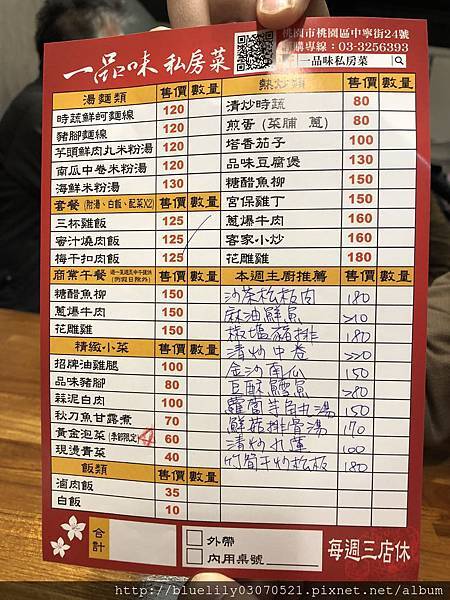 桃園市桃園區中寧街24號
訂購專線：03-3256393
一品味 私房菜
一品味私房菜
湯麵類 售價 數量
時蔬鮮蚵麵線 120
豬腳麵線 120
芋頭鮮肉丸米粉湯 120
南瓜中卷米粉湯 120
海鮮米粉湯 130
套餐(附湯、白飯、配菜X2) 售價 數量
三杯雞飯 125
蜜汁燒肉飯 125
梅干扣肉飯 125
商業午餐 售價 數量
糖醋魚柳 150
蔥爆牛肉 150
花雕雞 150
精緻小菜 售價 數量
招牌油雞腿 100
品味豬腳 80
蒜泥白肉 100
秋刀魚甘露煮 70
黃金泡菜(季節限定) 60
現燙青菜 40
飯類 售價 數量
滷肉飯 35
白飯 10
熱炒類 售價 數量
清炒時蔬 80
煎蛋(菜脯 蔥) 80
塔香茄子 100
品味豆腐煲 130
糖醋魚柳 150
宮保雞丁 150
蔥爆牛肉 160
客家小炒 160
花雕雞 180
本週主廚推薦 售價 數量
沙茶松板肉 180
麻油鮮魚 210
椒塩豬排 180
清炒中卷 220
金沙南瓜 150
豆酥鱈魚 280
蘿蔔羊角丸湯 150
鮮菇排骨湯 170
清炒水蓮 100
竹筍干炒松板 180
合計
外帶
內用桌號
每週三店休
http://bluelily03070521.pixnet.net/album